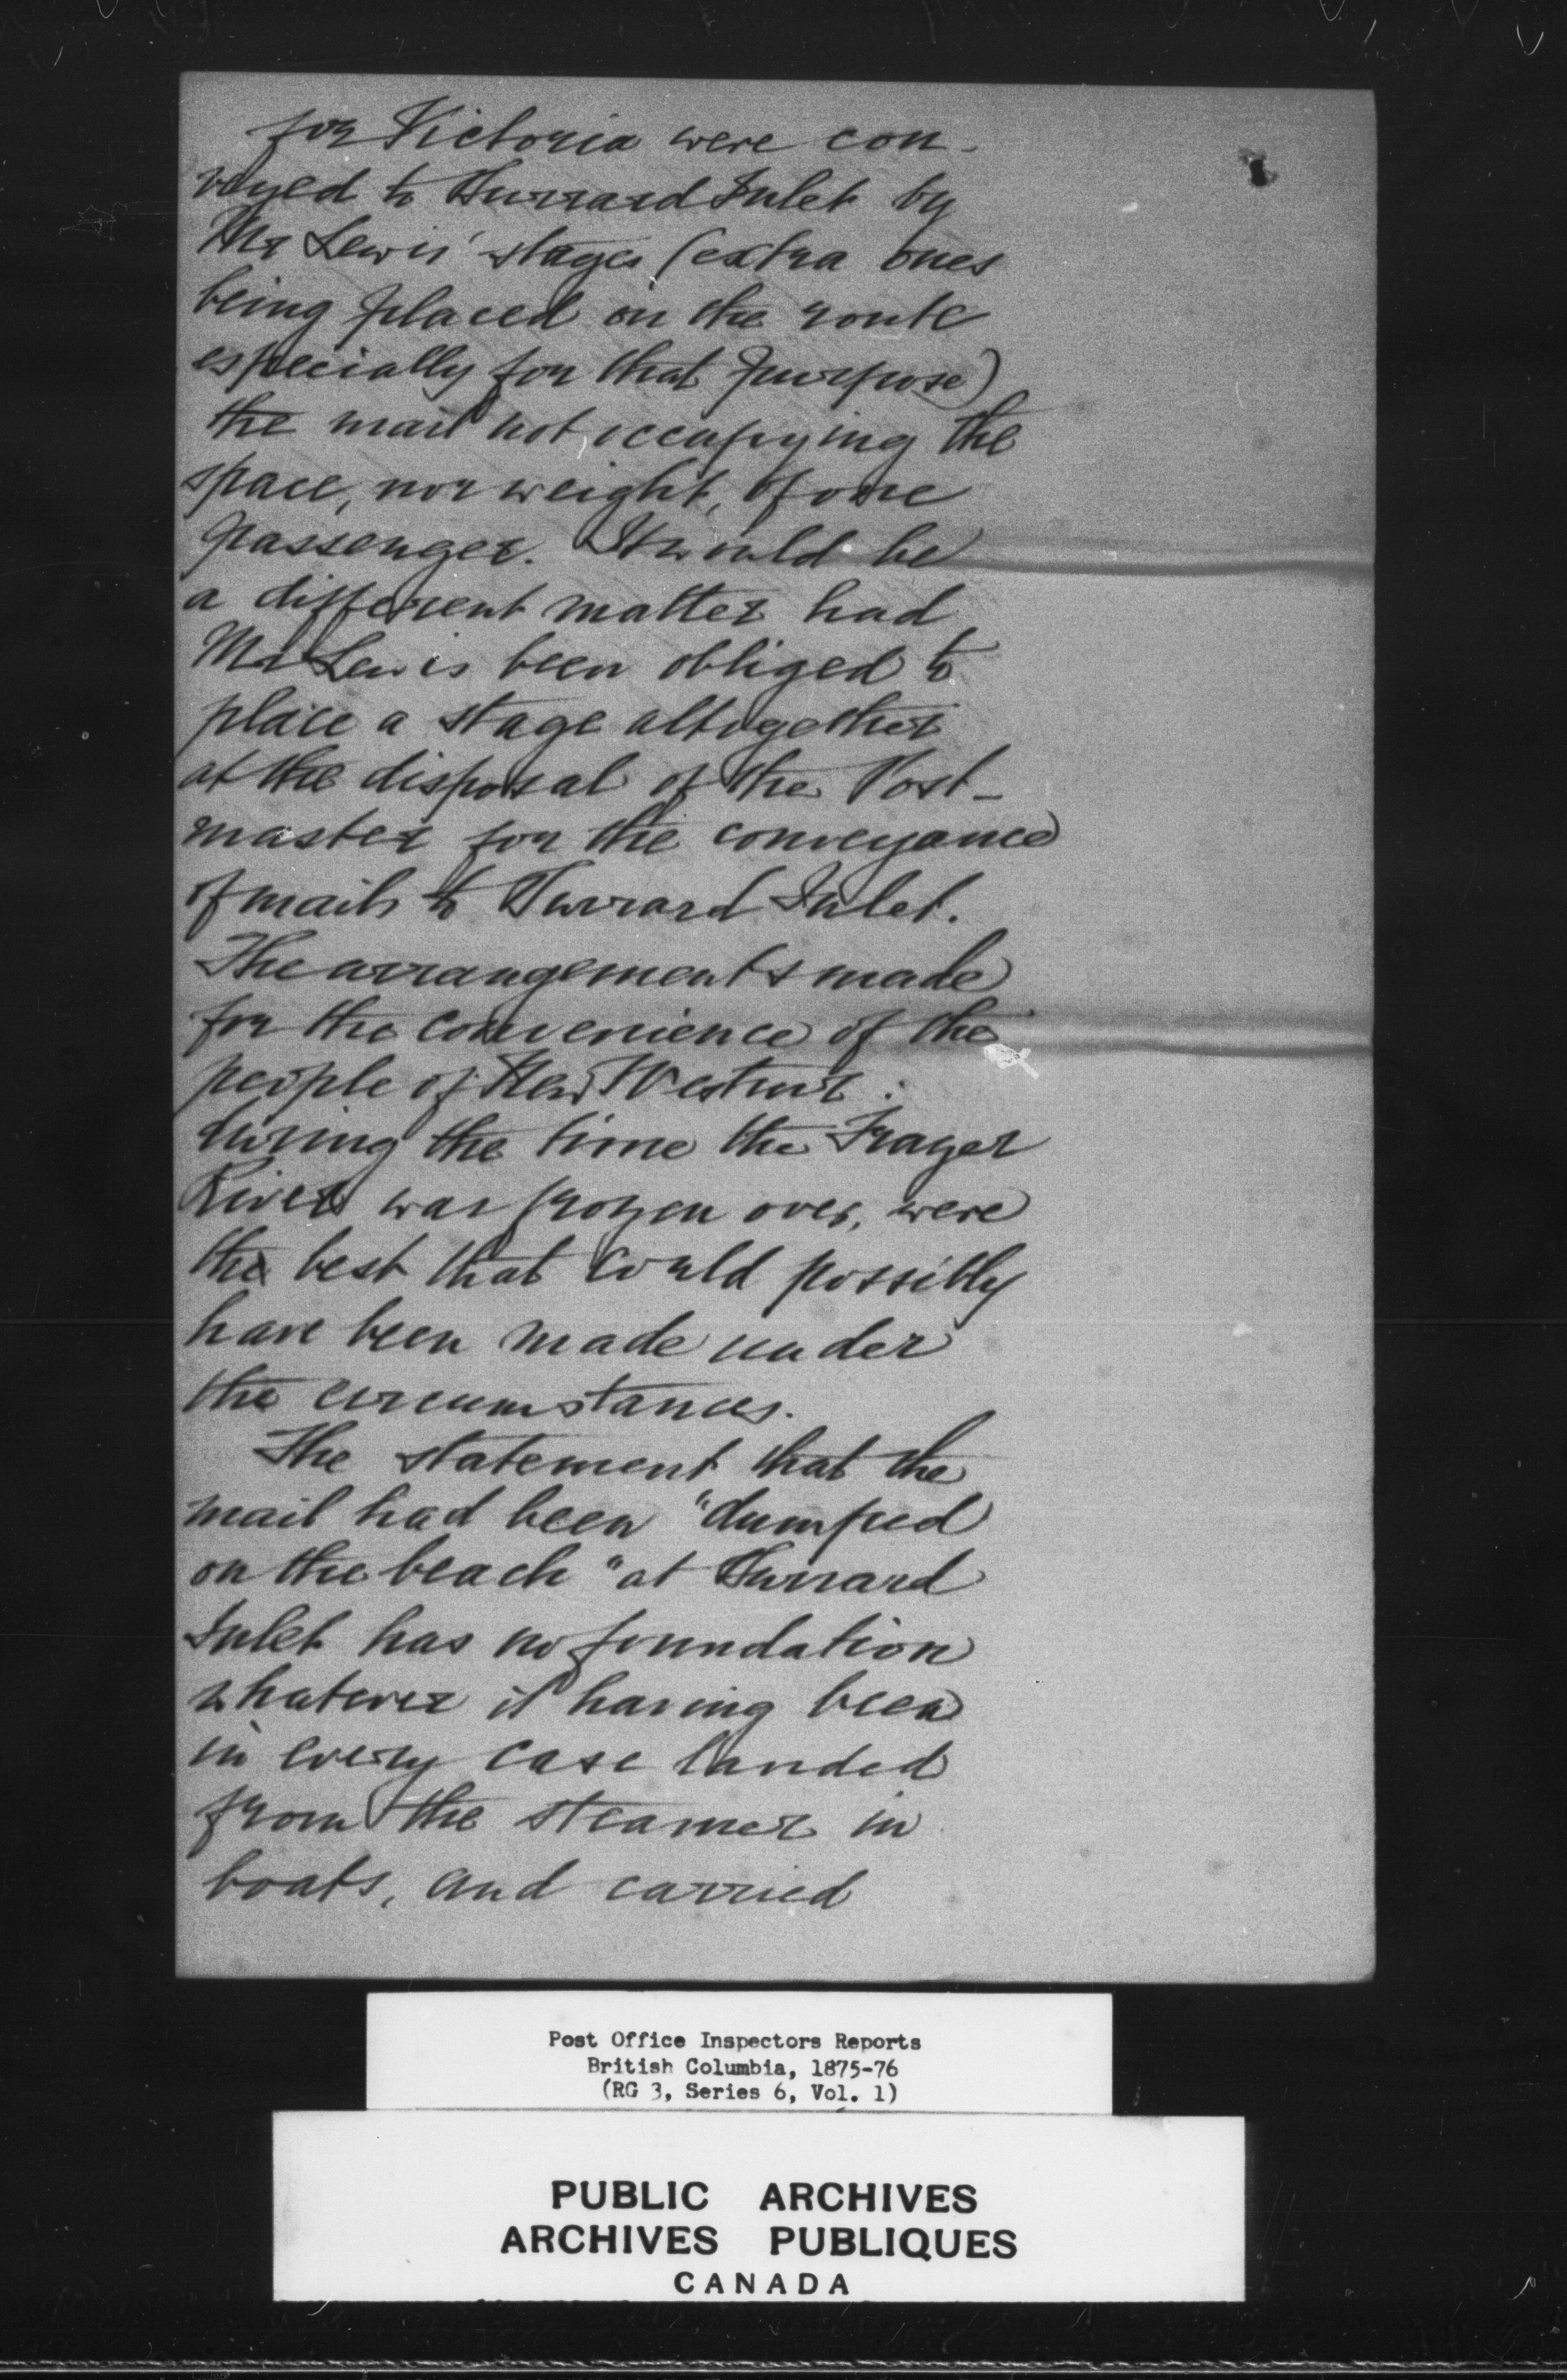 for Victoria were con-
veyed to Burrard Inlet by
Mr Lewis' stages (extra ones
being placed on the route
especially for that purpose)
the mail not occupying the
space, nor weight, of one
passenger. It would be
a different matter had
Mr Lewis been obliged to
place a stage altogether
at the disposal of the Post-
master for the conveyance
of mails to Burrard Inlet.
The arrangements made
for the convenience of the
people of New Westmr:
during the time the Frazer
River was frozen over, were
the best that could possibly
have been made under
the circumstances.
The statement that the
mail had been "dumped
on the beach" at Burrard
Inlet has no foundation
whatever it having been
in every case landed
from the steamer in
boats, and carried
Post Office Inspectors Reports
British Columbia, 1875-76
(RG 3, Series 6, Vol. 1)
PUBLIC ARCHIVES
ARCHIVES PUBLIQUES
CANADA